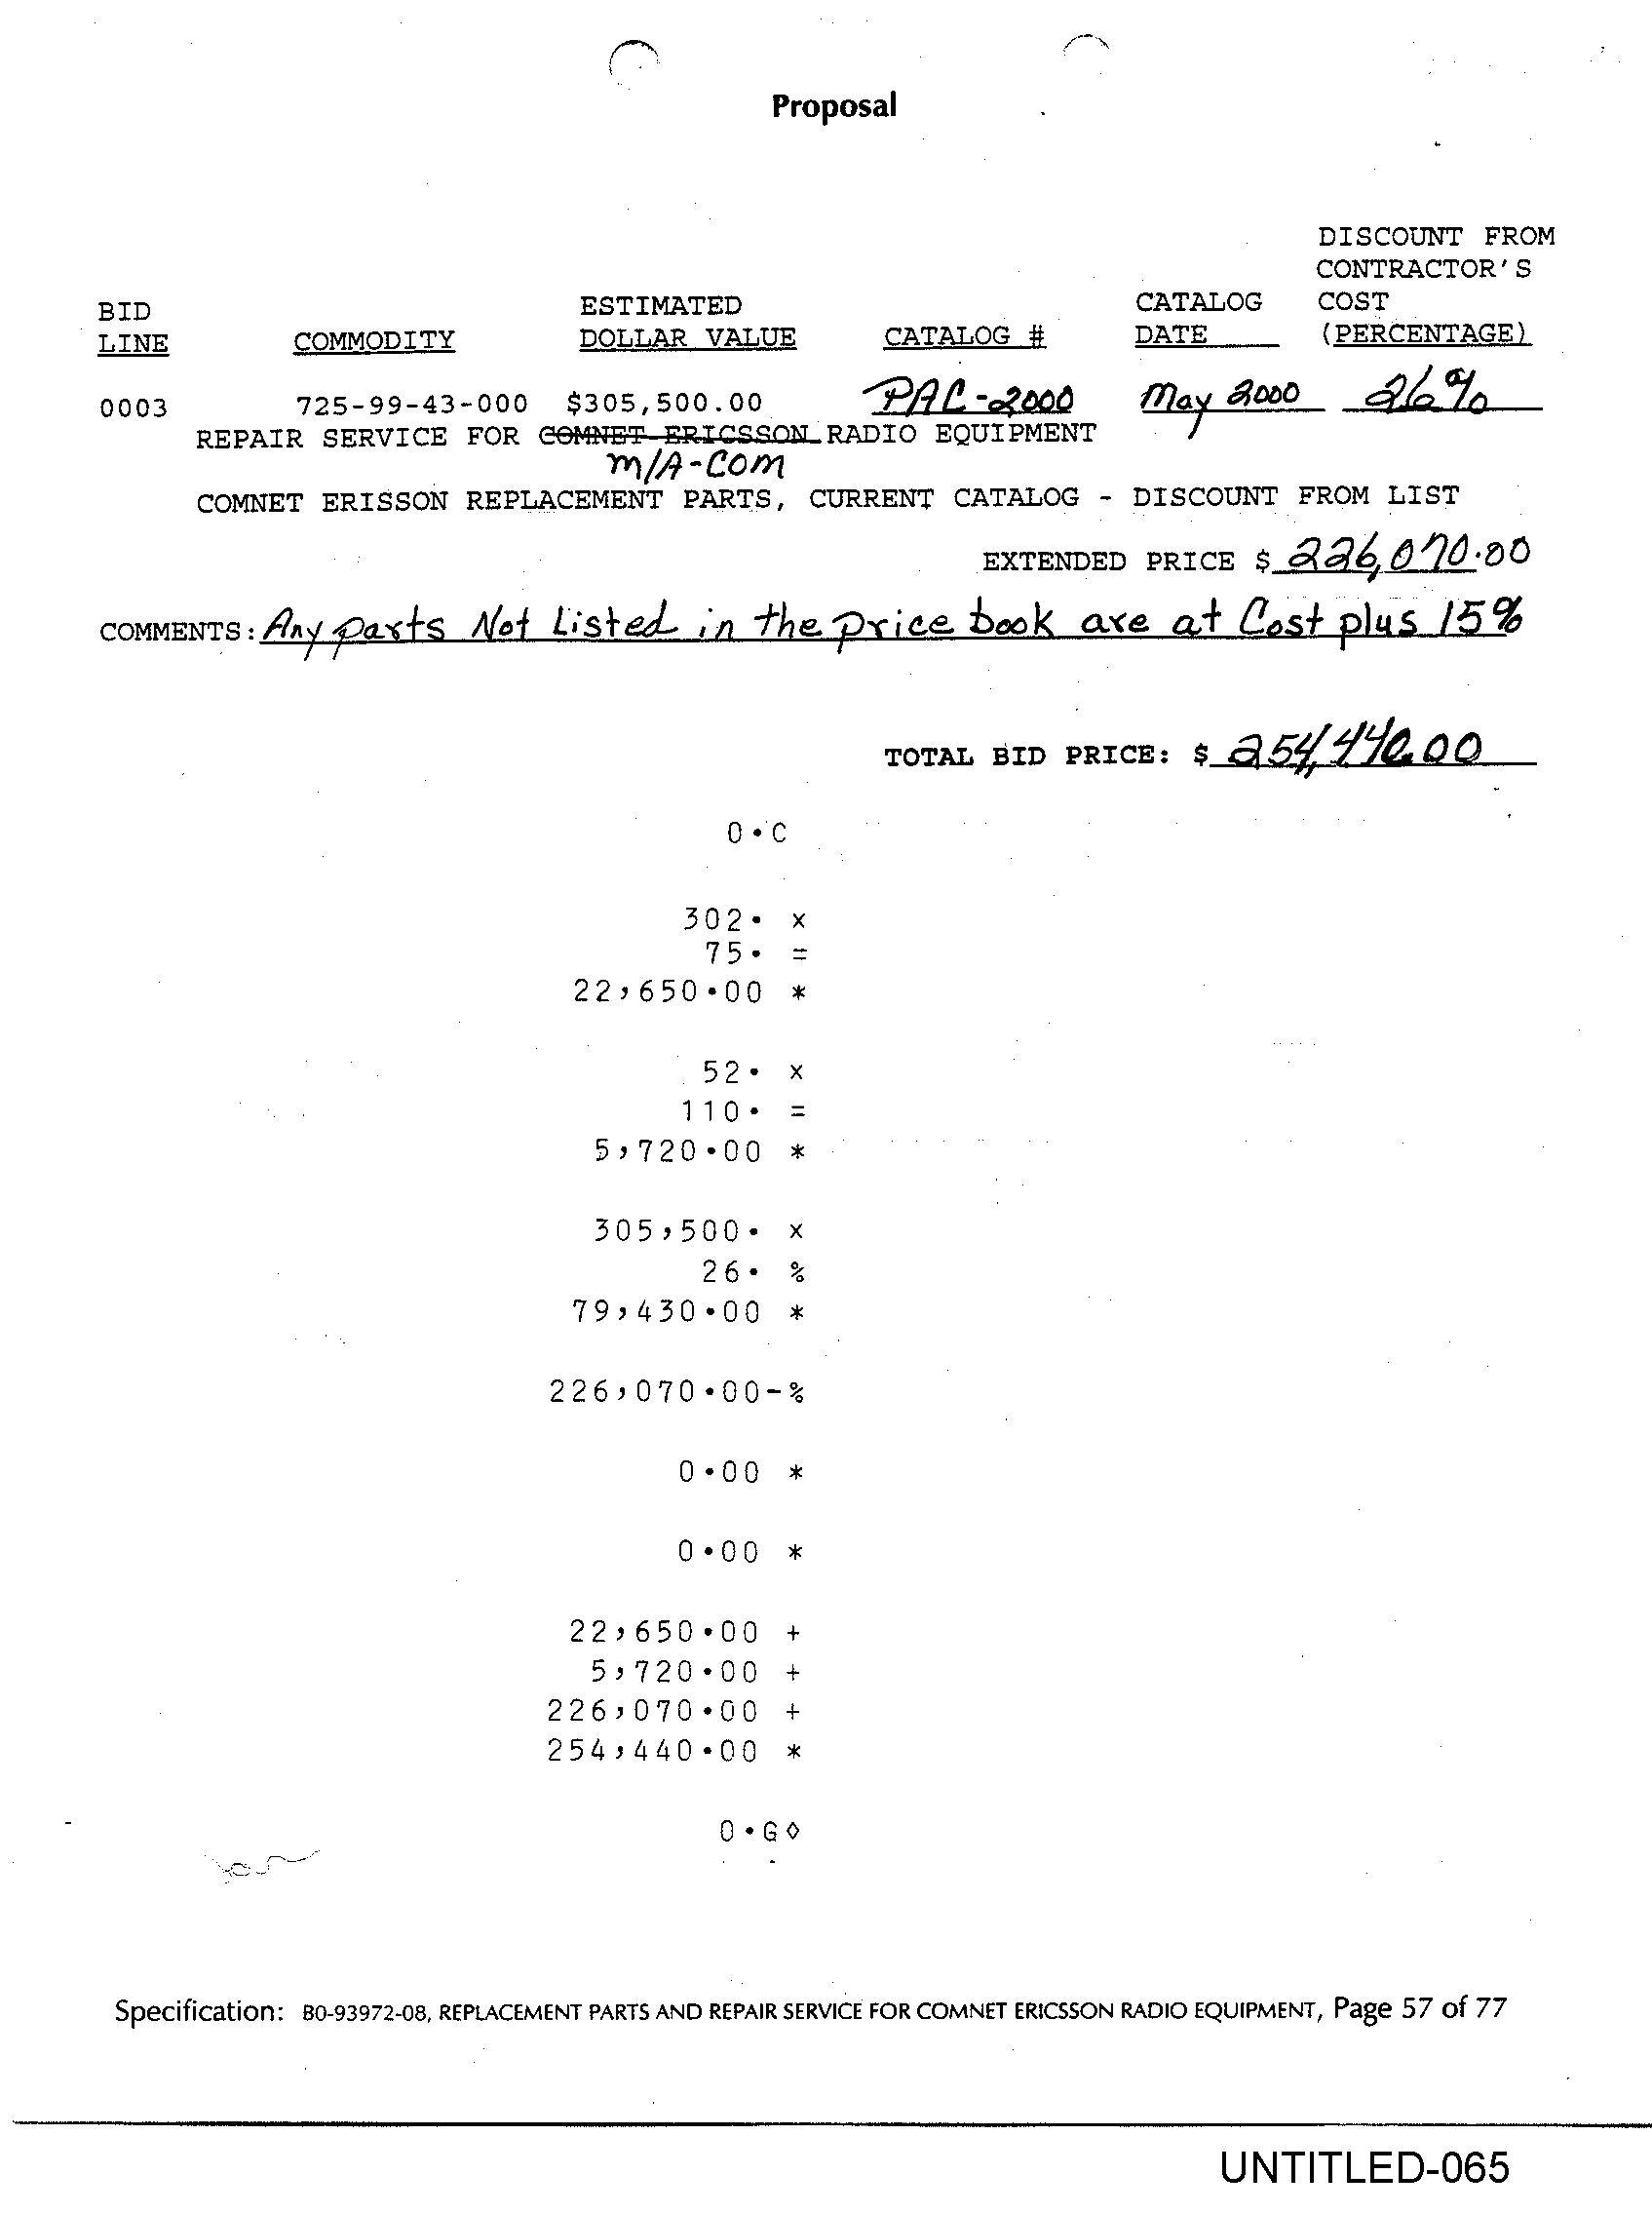 Proposal
DISCOUNT FROM
CONTRACTOR'S
BID ESTIMATED CATALOG COST
LINE COMMODITY DOLLAR VALUE CATALOG # DATE (PERCENTAGE)
0003 725-99-43-000 $305,500.00 PAC-2000 May 2000 26%
REPAIR SERVICE FOR COMNET ERICSSON RADIO EQUIPMENT
M/A-COM
COMNET ERISSON REPLACEMENT PARTS, CURRENT CATALOG - DISCOUNT FROM LIST
EXTENDED PRICE $ 226,070.00
COMMENTS: Any parts Not Listed in the price book are at Cost plus 15%
TOTAL BID PRICE: $ 254,440.00
0•C
302• x
75• =
22,650•00 *
52• x
110• =
5,720•00 *
305,500• x
26• %
79,430•00 *
226,070•00-%
0•00 *
0•00 *
22,650•00 +
5,720•00 +
226,070•00 +
254,440•00 *
0•G◊
Specification: B0-93972-08, REPLACEMENT PARTS AND REPAIR SERVICE FOR COMNET ERICSSON RADIO EQUIPMENT, Page 57 of 77
UNTITLED-065